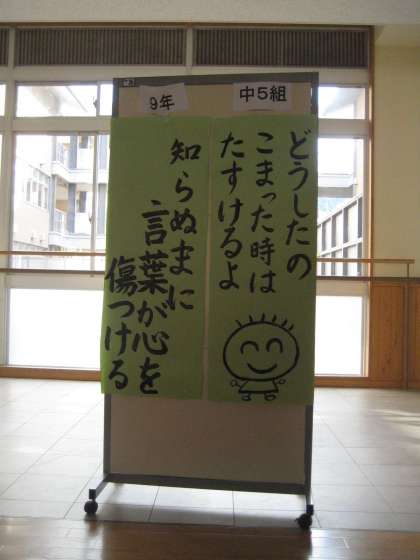 中5組
どうしたの
こまった時は
たすけるよ
9年
知らぬまに
言葉が心を
傷つける